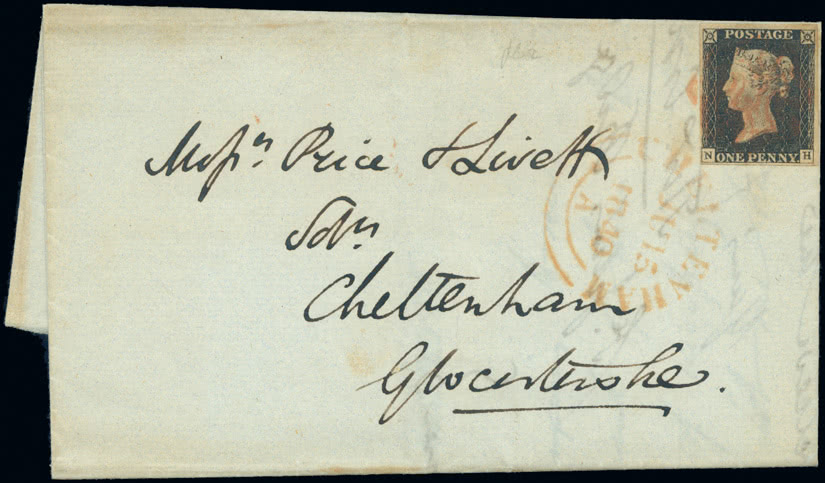 POSTAGE
N ONE PENNY H
Messrs Price & Livett
Solrs
Cheltenham
Glocestershe.
CHELTENHAM
1840